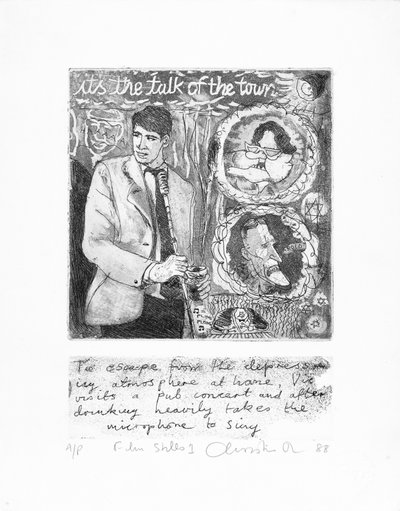 its the talk of the town.
To escape from the depress
ing atmosphere at home Vic
visits a pub concert and after
drinking heavily takes the
microphone to sing
A/P Film Stills 1 88